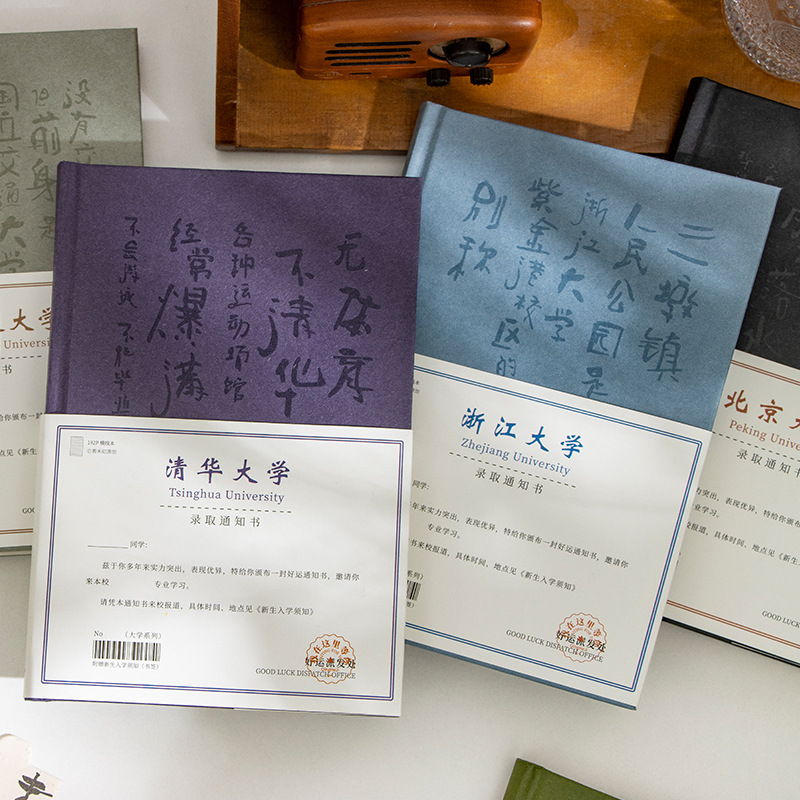 没有交
但前身是
国立交通大学
大学
University
书
无废话
不清华
各种运动场馆
经常爆满
不会游泳 不能毕业
192P 横线本
清华大学
Tsinghua University
录取通知书
同学:
兹于你多年来实力突出，表现优异，特给你颁布一封好运通知书，邀请你
来本校 专业学习。
请凭本通知书来校报道，具体时间、地点见《新生入学须知》
No （大学系列）
附赠新生入学须知（书签）
在这里等
好运派发处
GOOD LUCK DISPATCH OFFICE
三墩镇
人民公园是
浙江大学
紫金港校区的
别称
浙江大学
Zhejiang University
录取通知书
同学:
年来实力突出，表现优异，特给你颁布一封好运通知书，邀请你
专业学习。
通知书来校报道，具体时间、地点见《新生入学须知》
系列）
知（书签）
在这里等
好运派发处
GOOD LUCK DISPATCH OFFICE
落
北京大
Peking Univer
录取通知书
出，表现优异，特给你颁布一封
学习。
报道，具体时间、地点见《新生入
GOOD LUCK